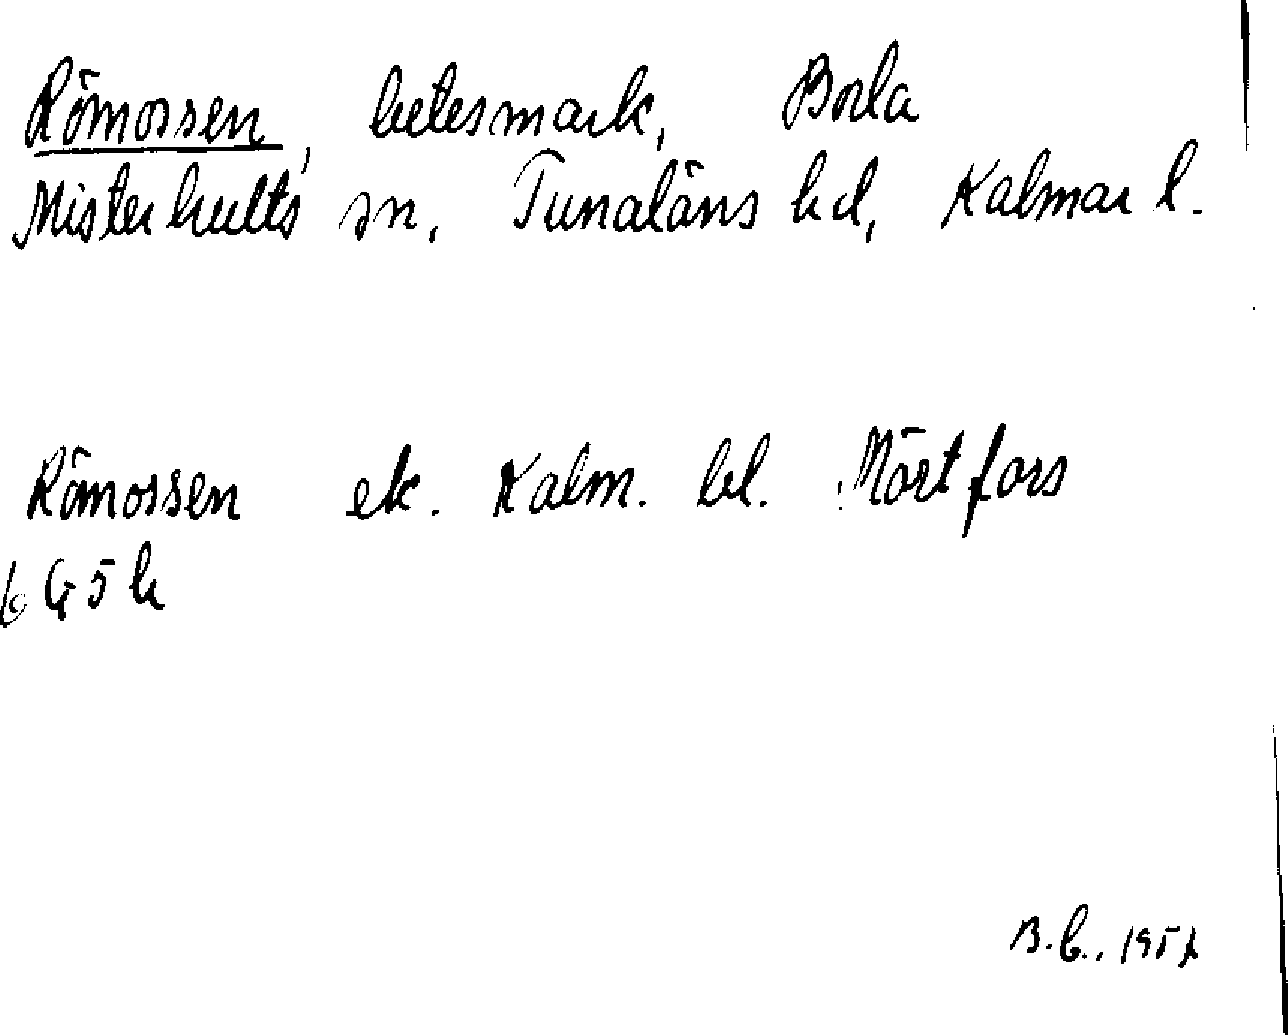 Römossen, betesmark, Borla
Misterhults sn, Tunaläns hd, Kalmar l.
Römossen ek. Kalm. bl. Mörtfors
6G5h